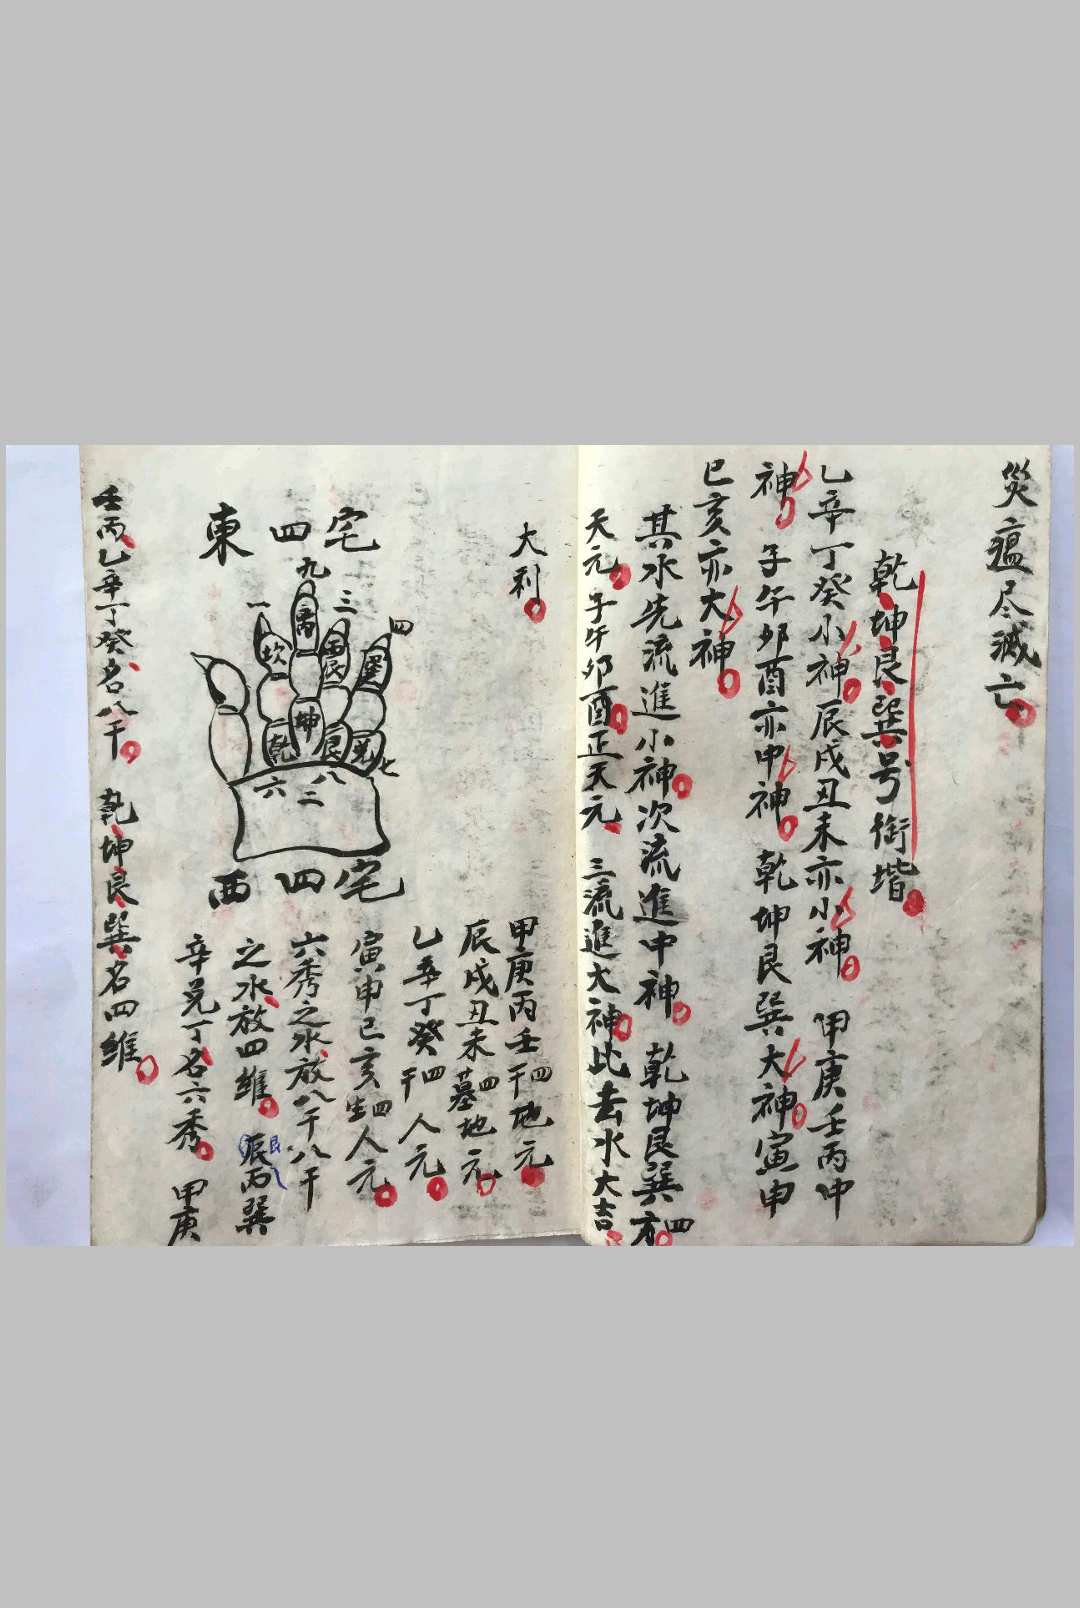 災瘟尽滅亡
乾坤艮巽号街堦
乙辛丁癸小神辰戌丑未亦小神 甲庚壬丙中
神 子午卯酉亦中神 乾坤艮巽大神寅申
巳亥亦大神
其水先流進小神次流進中神 乾坤艮巽四
天元子午卯酉正天元 三流進大神比去水大吉
大利
甲庚丙壬四干地元
辰戌丑未四墓地元
乙辛丁癸四干人元
寅申巳亥四生人元
六秀之水放八干八干
之水放四維 艮丙巽
辛兑丁名六秀 甲庚
壬丙乙辛丁癸名八干 乾坤艮巽名四维
東四宅
九
一
三
四
离
坎
震
巽
坤
乾
艮
兑
六
二
八
七
西四宅